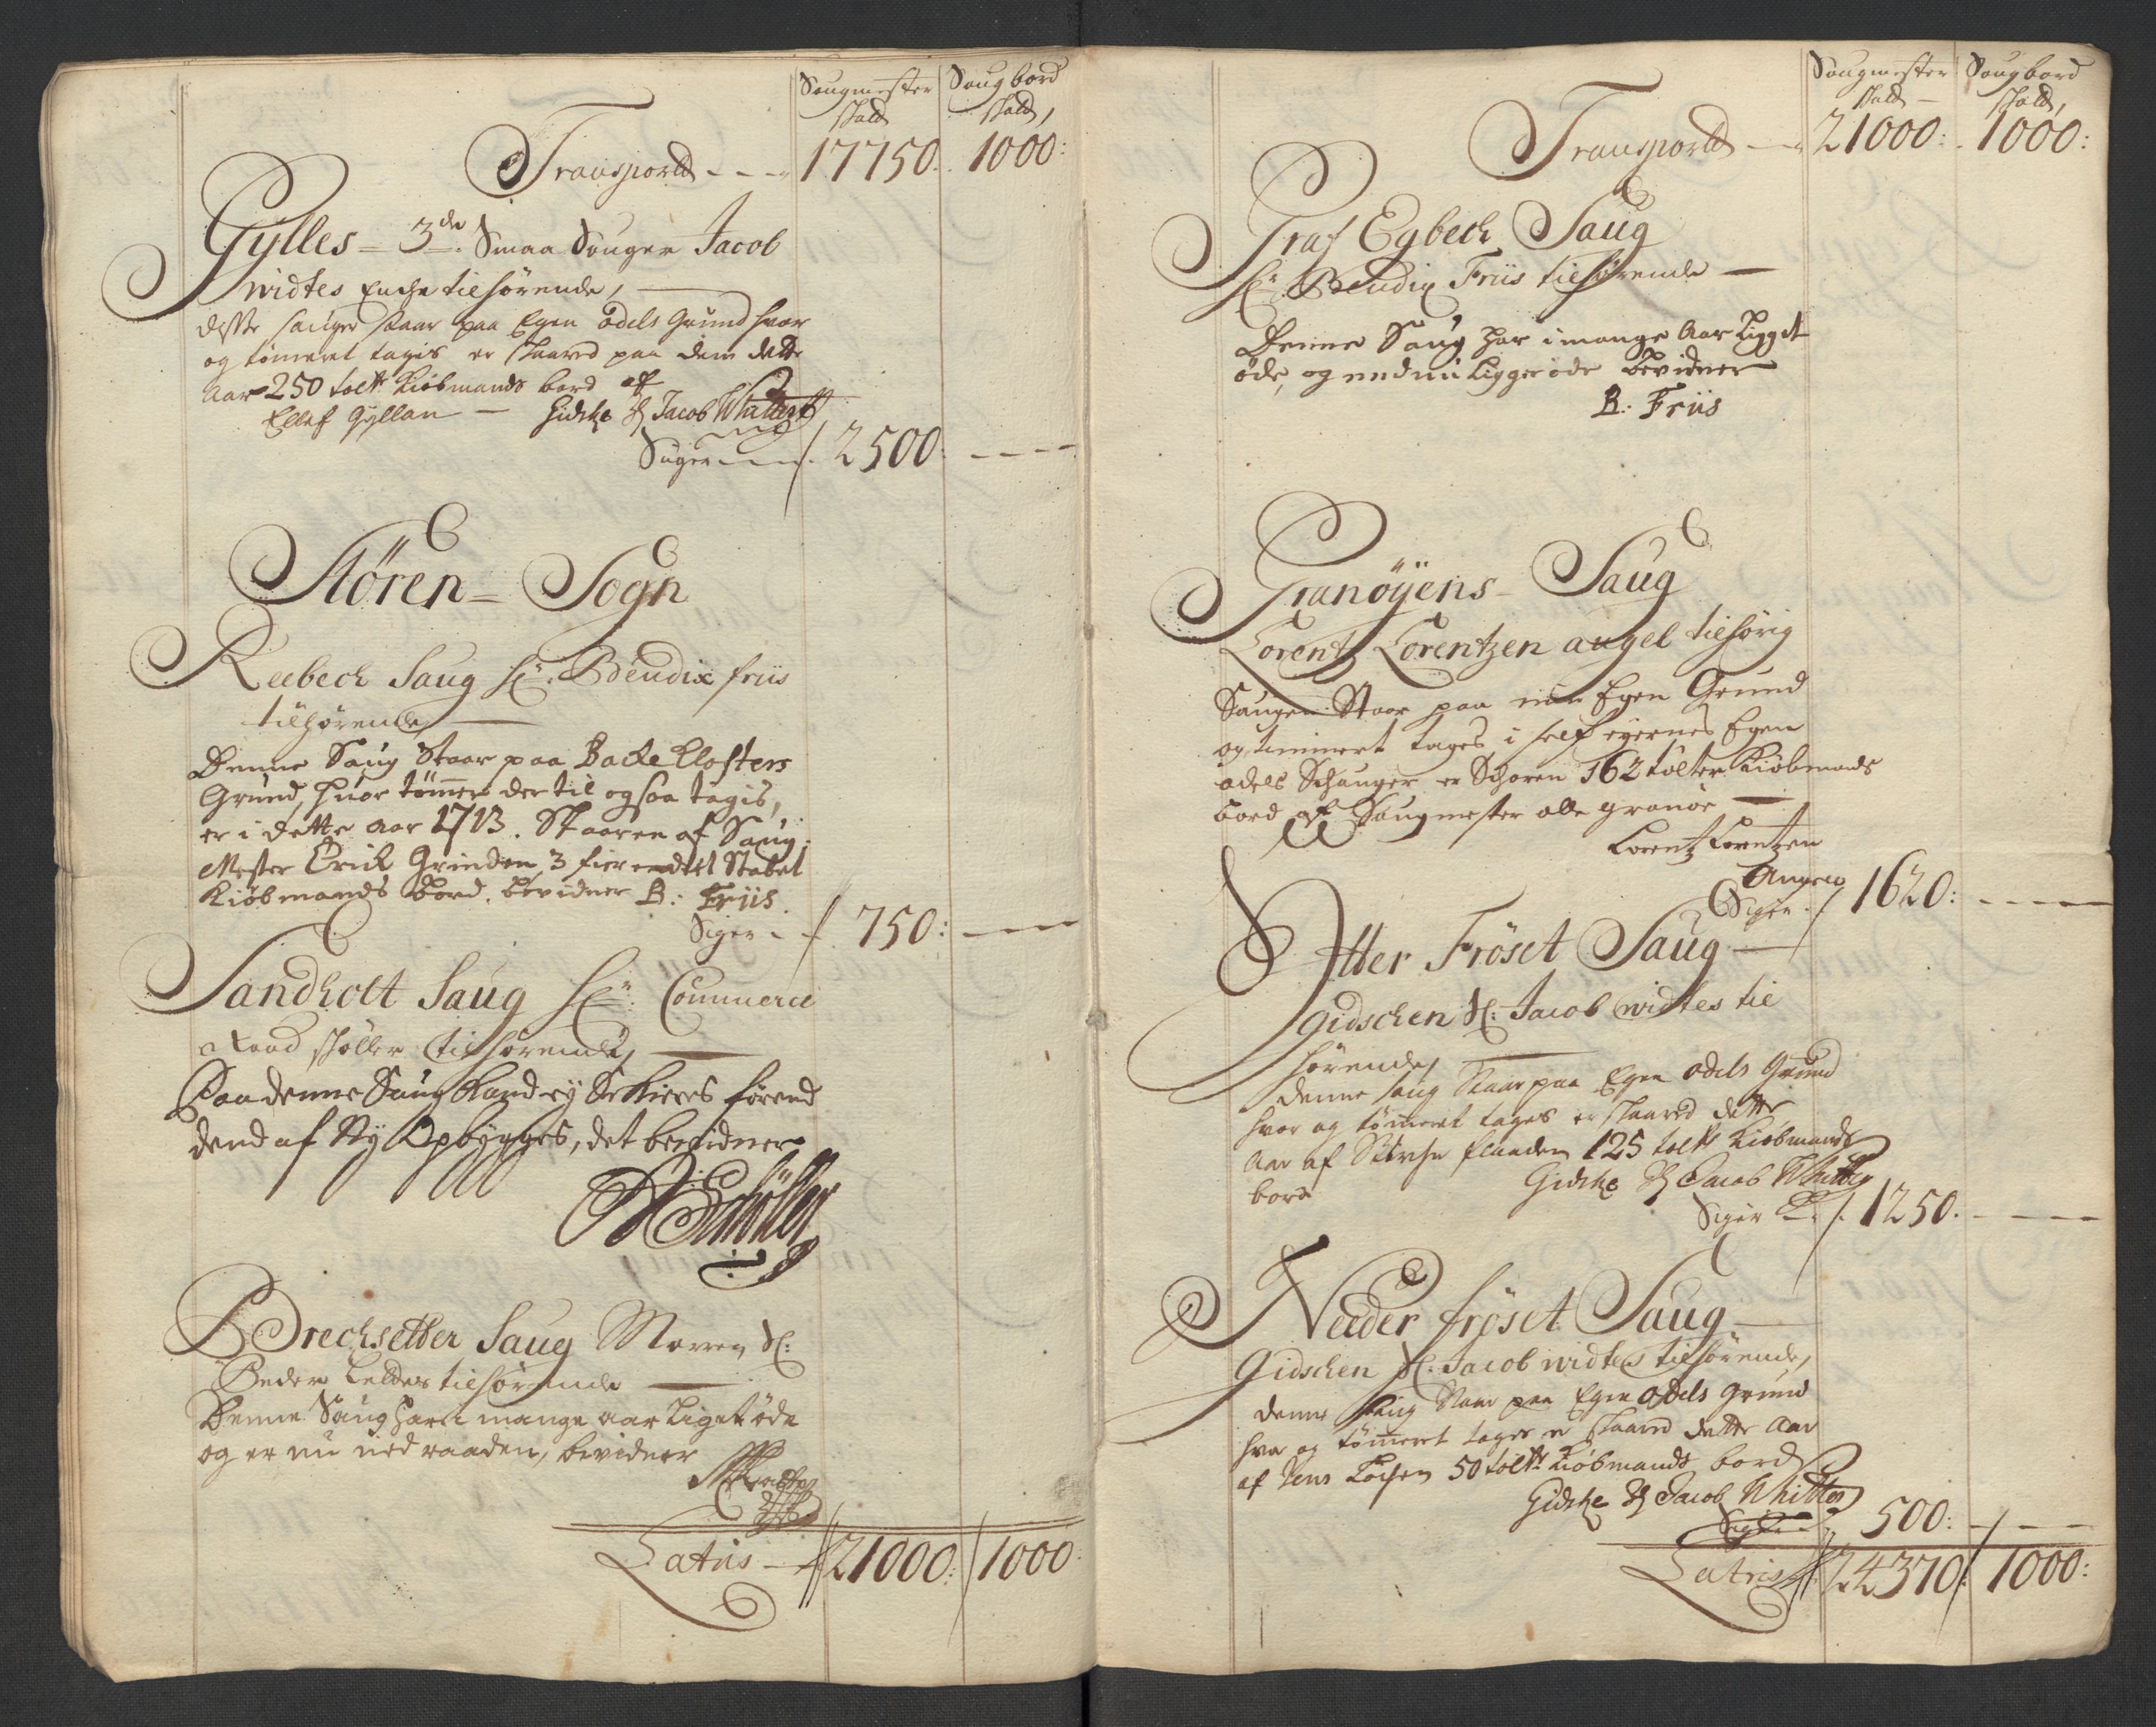 Saugmester Saugbord
skatt skatt,
Transportt --- 17750. 1000:
Gylles = 3de Smaa Sauger Jacob
widtes Encke tilhørende,
disse sauger staar paa Egen odels Grund hvor
og tømeret tagis er skaared paa dem dette
Aar 250 tolt Kiøbmands bord af
Ellef Gyllan — Gidske Sl Jacob Whitters
Siger --- 2500: ----
Støren = Sogn
Reebech Saug Hr. Bendix friis
tilhørende
Denne Saug Staar paa Backe Closters
Grund, huor tømer der til ogsaa tagis,
er i dette aar 1713. Skaaren af Saug-
Mester Erick Grinden 3 fierendeel Stabel
Kiøbmands bord. bevidner B: Friis.
Siger - - 750: ----
Sandholt Saug Hr: Commerce
Raad skøller tilhørende,
Paa denne Saug Kand ey Skieres førend
dend af Ny Opbygges, det bevidner
Schøller
Brechsetter Saug Maren Sl:
Peder Leldes tilhørende
Denne Saug har i mange aar Liget øde
og er nu ned raaden, bevidner
Latus - 21000: 1000
Saugmester Saugbord
skatt skatt,
Transportt — 21000: 1000:
Graf Egbech Saug
Hr. Bendix Friis tilhørende —
Denne Saug har i mange Aar Ligget
øde, og end nu Ligger øde Bevidner
B: Friis
Granøyens Saug
Lorentz Lorentzen angel tilhørig
Saugen Staar paa min Egen Grund
og timmert tages i self eyernes Egen
odels Schauger er Schoren 162 tolter Kiøbmands
bord af Saugmester olle granøe —
Lorentz Lorentzen
Angell
Siger . 1620: ----
Øtter Frøset Saug —
Gidschen Sl: Jacob widtes til
hørende,
denne saug Staar paa Egen odels Grund
hvor og tømeret tages er skaared dette
Aar af 125 tolt Kiøbmands
bord Gidske Sl Jacob Whitter
Siger 1250. ----
Neder frøset Saug —
Gidschen Sl: Jacob widtes tilhørende,
denne Saug Staar paa Egen odels Grund
hvor og tømeret tages er skaared dette Aar
af Jens 50 tolt Kiøbmands bord
Gidske Sl Jacob Whitter
Siger 500: ----
Latus 24370: 1000: